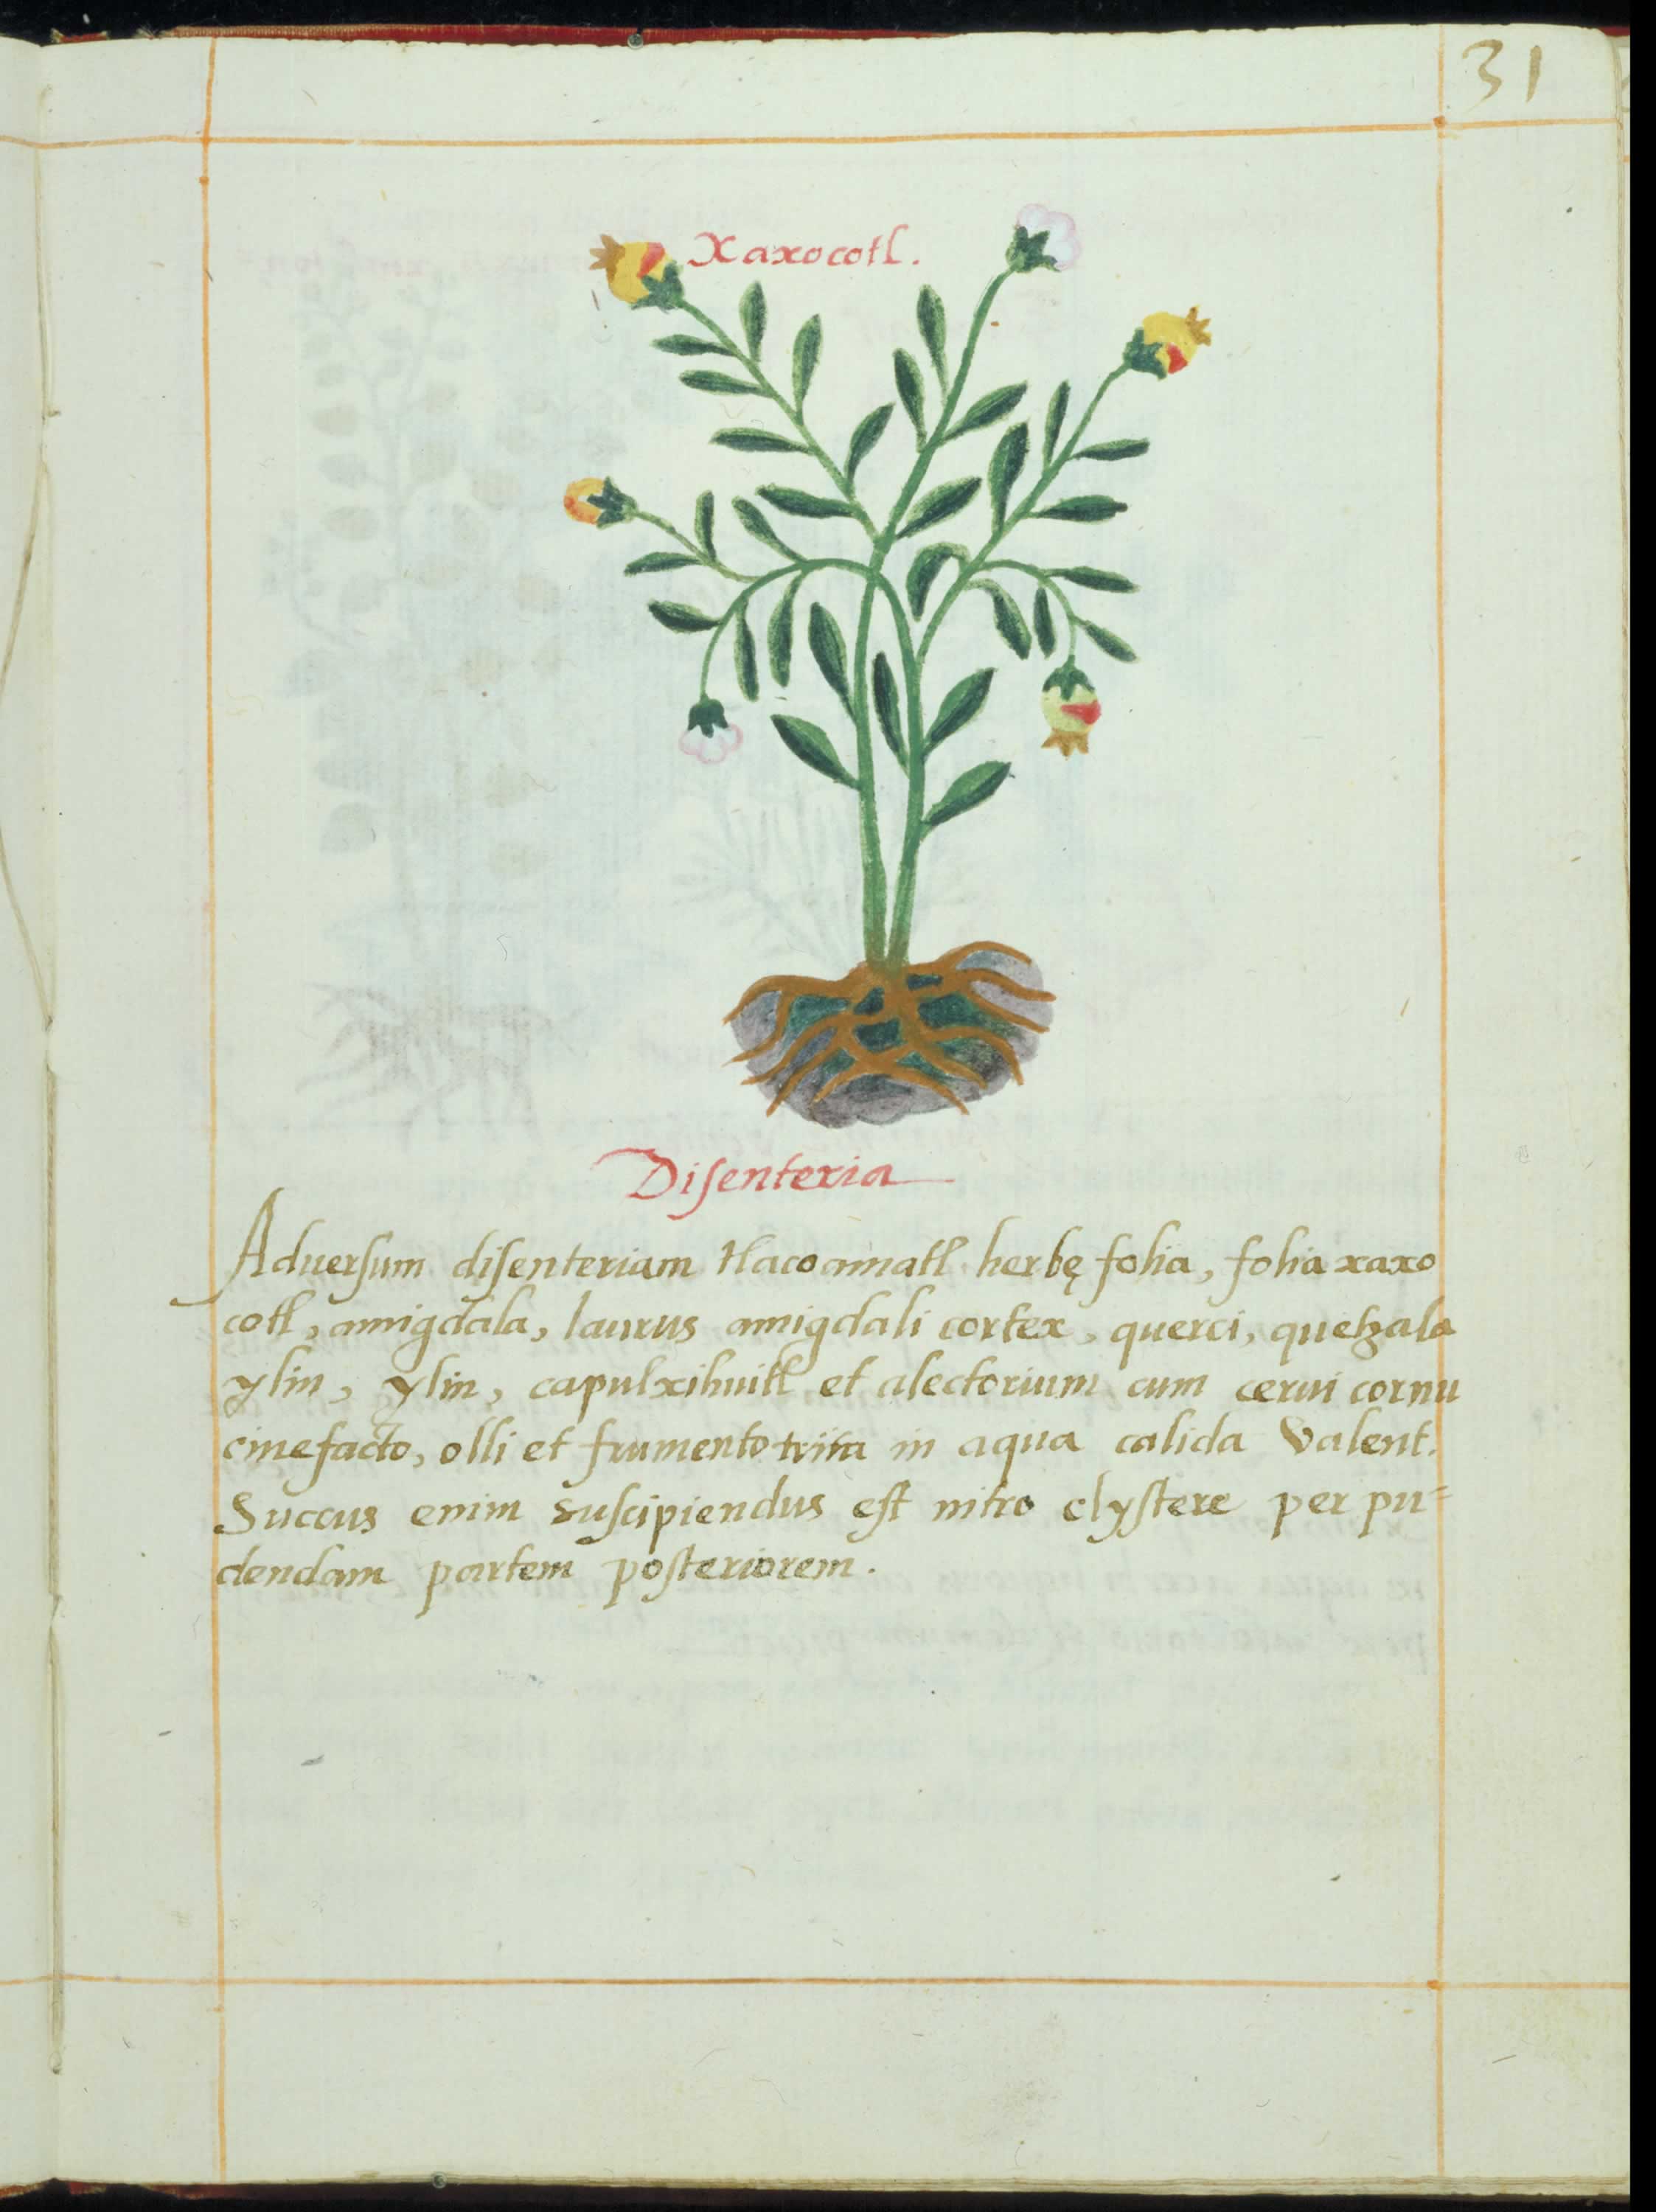 31
Xaxocotl.
Disenteria
Aduersum disenteriam tlacoamatl herbę folia, folia xaxo
cotl, amigdala, laurus amigdali cortex, querci, quetzala
ylin, ylin, capulxihuitl et alectorium cum cerui cornu
cinefacto, olli et frumento trita in aqua calida valent.
Succus enim suscipiendus est nitro clystere per pu=
dendam partem posteriorem.